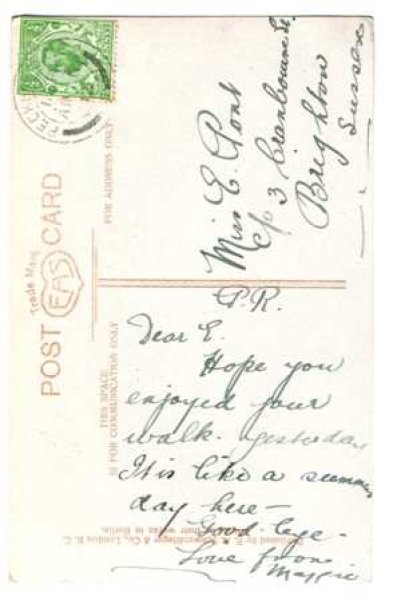 POST CARD
Trade Mark
EAS
FOR ADDRESS ONLY
THIS SPACE
IS FOR COMMUNICATION ONLY
Miss E. Pont
c/o 3 Cranbourne St.
Brighton
Sussex
P.R.
Dear E.
Hope you
enjoyed your
walk. yesterday
It is like a summer
day here –
Good-bye-
Love from
Maggie
& Co., London E. C.
works in Berlin.